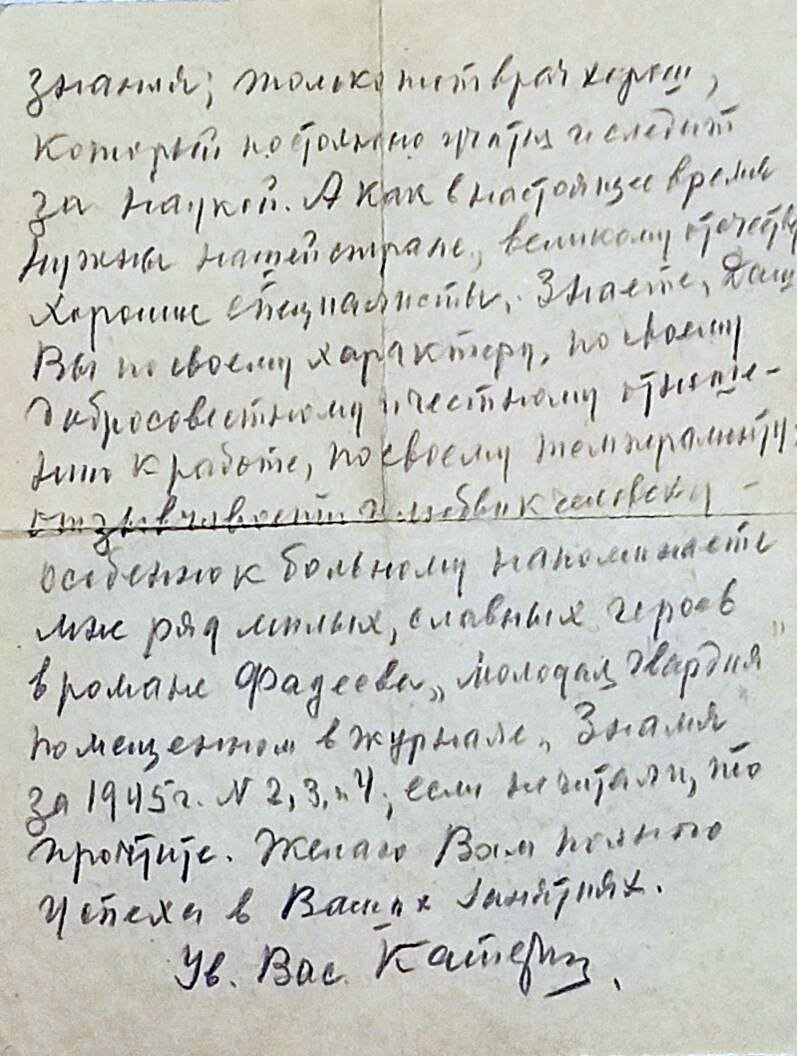 знания; только тот врач хорош,
который постоянно учится и следит
за наукой. А как в настоящее время
нужны нашей стране, великому отечеству
хорошие специалисты. Знаете, Даш
Вы по своему характеру, по своему
добросовестному и честному отноше-
нию к работе, по своему темпераменту:
отзывчивости и любви к человеку –
особенно к больному напоминаете
мне ряд милых, славных героев
в романе Фадеева „Молодая Гвардия"
помещенном в журнале „Знамя
за 1945 г. N 2, 3, и 4, если не читали, то
прочтите. Желаю Вам полного
успеха в Ваших занятиях.
Ув. Вас